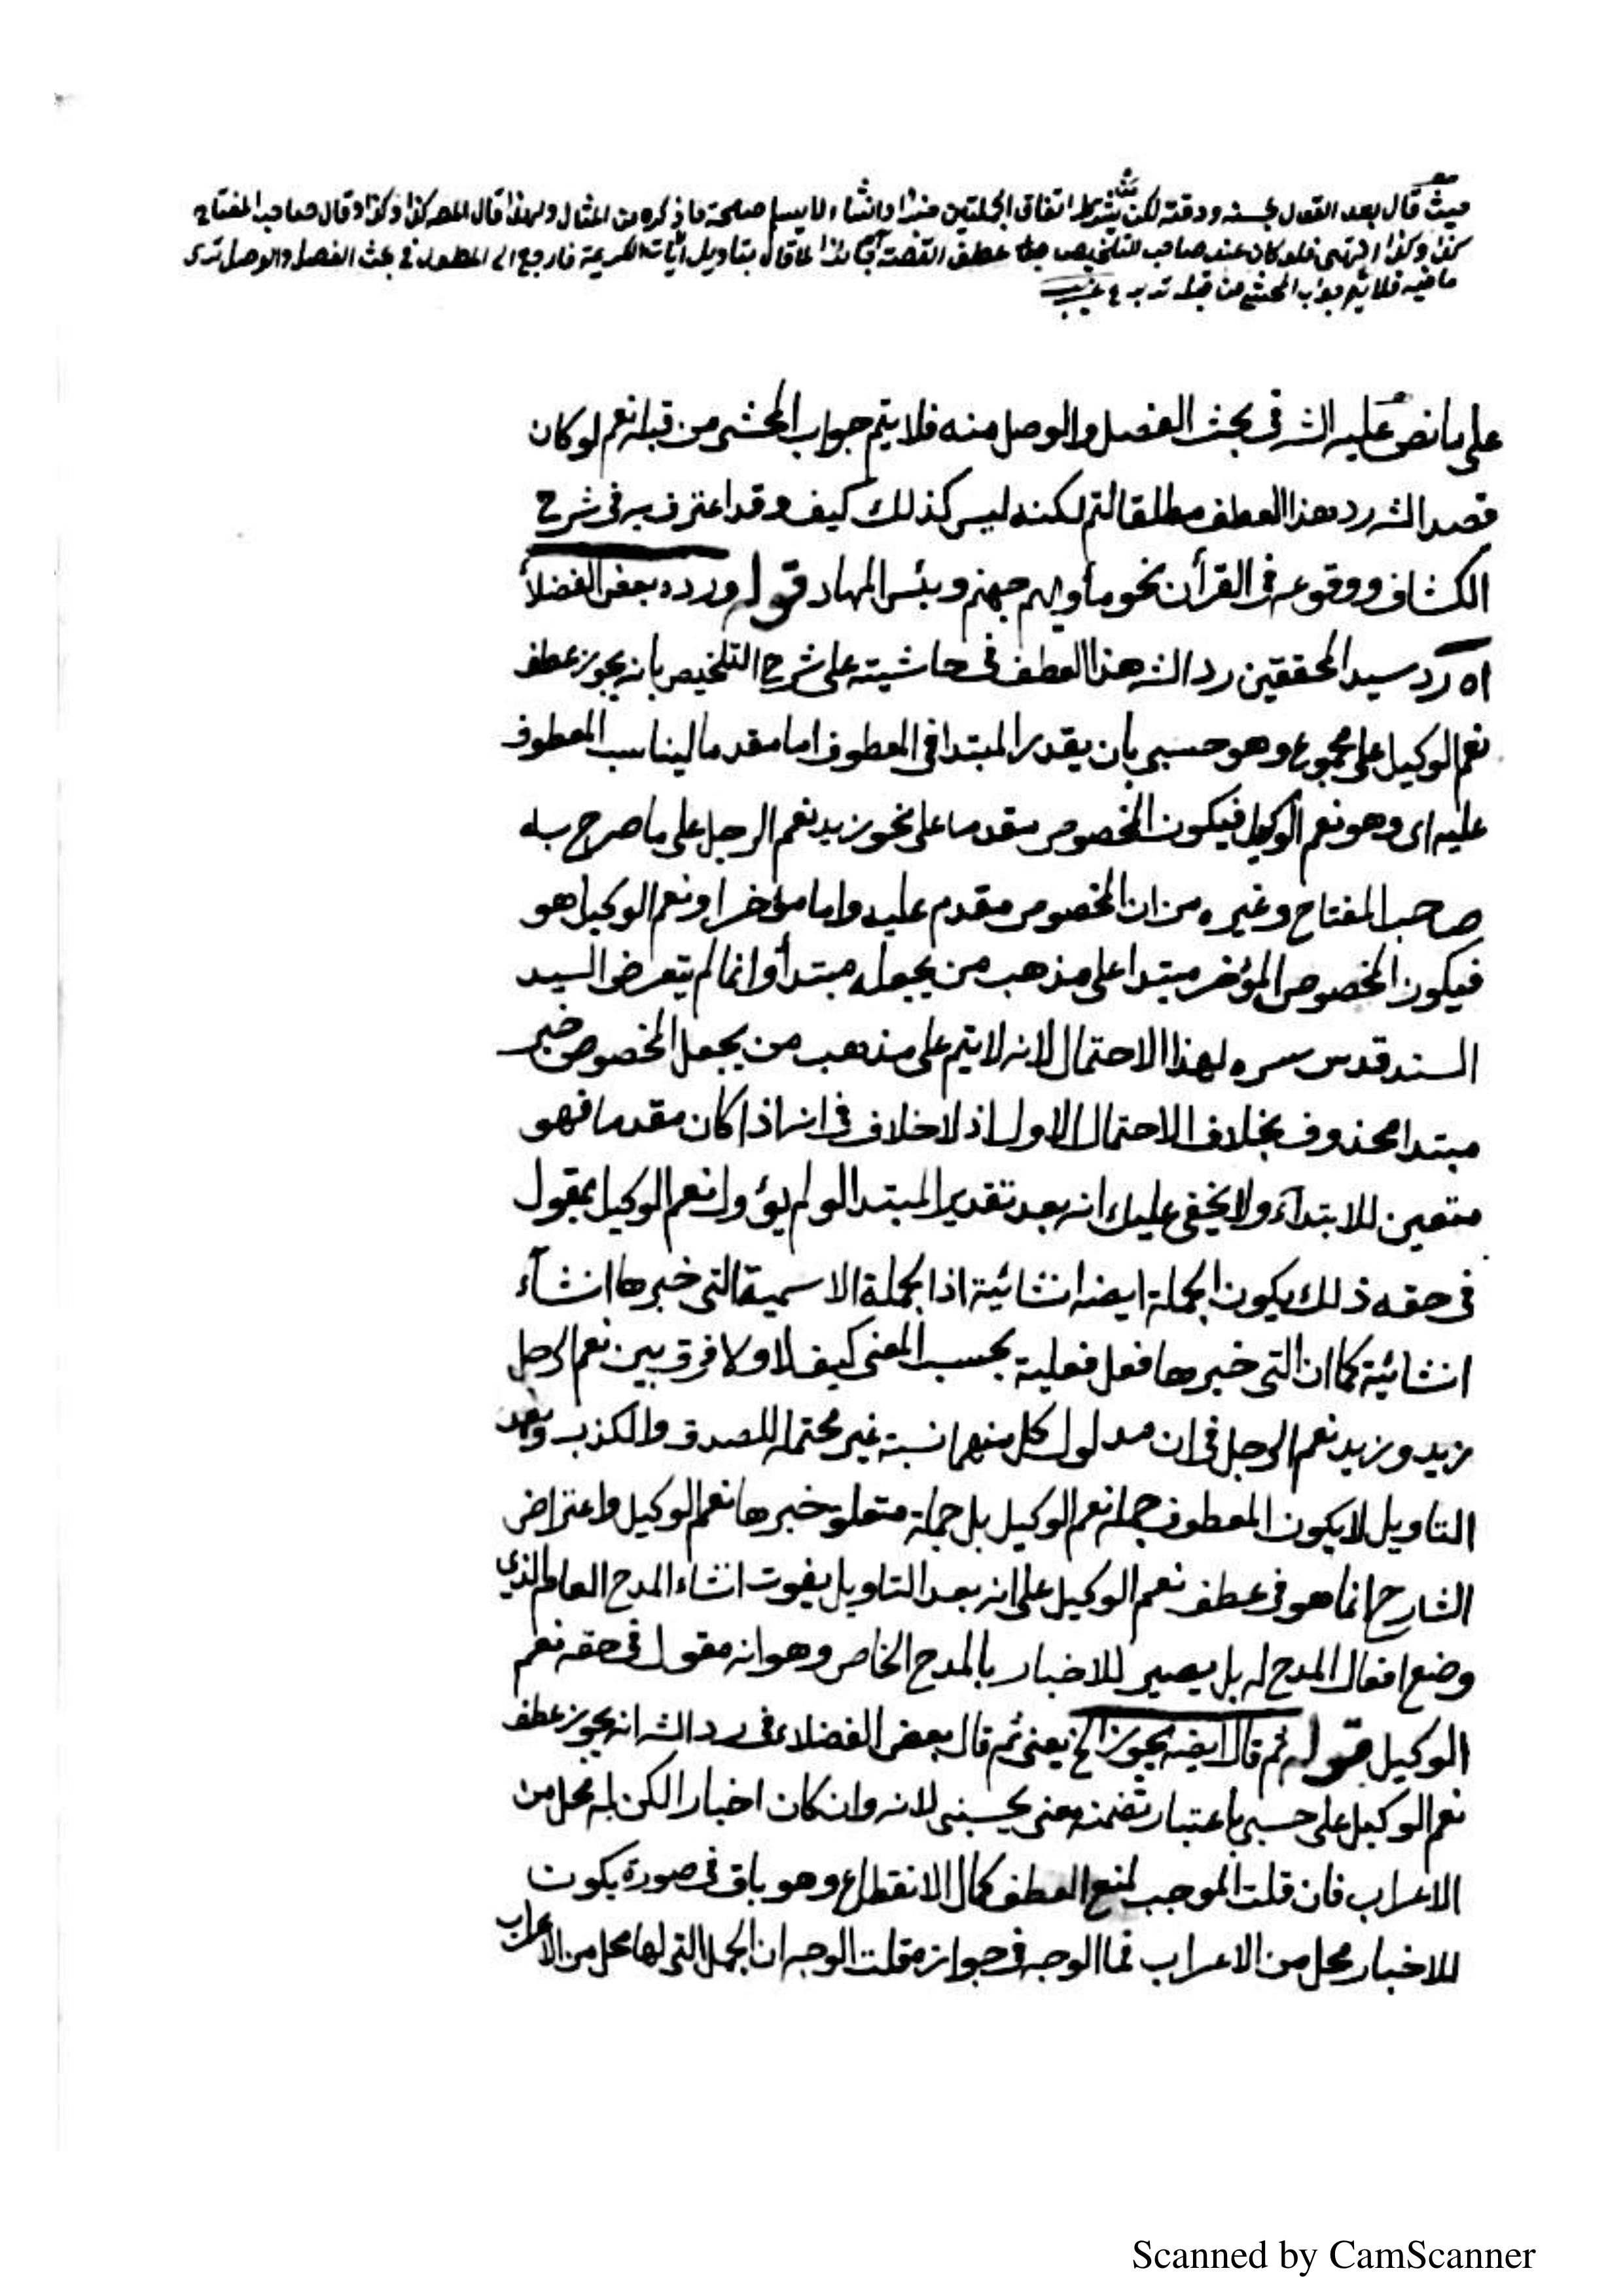 حيث قال بعد القول بحسنه ودقته لكن يشترط اتفاق الجملتين خبرا وانشاء لا يسلم صحة ما ذكره من المثال ولهذا قال المصـ كذا وكذا وقال صاحب المفتاح
كذا وكذا انتهى فلو كان عند صاحب التلخيص عطف القصة جائزا لما قال بتاويل آيات الكريمة فارجع الى المطول في بحث الفصل والوصل ترى
ما فيه فلا يتم جواب المحشى من قبله تدبر
على ما نص عليه الشـ فى بحث الفصل والوصل منه فلا يتم جواب المحشى من قبله نعم لو كان
قصد الشـ رد هذا العطف مطلقا لتم لكنه ليس كذلك كيف وقد اعترف به فى شرح
الكشاف ووقوعه فى القرأن نحو مأويهم جهنم وبئس المهاد قوله ورده بعض الفضلأ
اه رد سيد المحققين رد الشـ هذا العطف فى حاشيته على شرح التلخيص بانه يجوز عطف
نعم الوكيل على مجموع وهو حسبى بان يقدر المبتدا فى المعطوف اما مقدما ليناسب المعطوف
عليه اى وهو نعم الوكيل فيكون المخصوص مقدما على نحو زيد نعم الرجل على ما صرح به
صاحب المفتاح وغيره من ان المخصوص مقدم عليه واما مؤخرا ونعم الوكيل هو
فيكون المخصوص المؤخر مبتدا على مذهب من يجعله مبتدأ وانما لم يتعرض السيد
السند قدس سره لهذا الاحتمال لانه لا يتم على مذهب من يجعل المخصوص خبر
مبتدا محذوف بخلاف الاحتمال الاول اذ لا خلاف فى انه اذا كان مقدما فهو
متعين للابتدآء ولا يخفى عليك انه بعد تقدير المبتدا لو لم يؤول نعم الوكيل بمقول
فى حقه ذلك يكون الجملة ايضه انشائية اذا الجملة الاسمية التى خبرها انشآء
انشائية كما ان التى خبرها فعل فعلية بحسب المعنى كيف لا ولا فرق بين نعم الرجل
زيد وزيد نعم الرجل فى ان مدلول كل منهما نسبة غير محتمله للصدق والكذب وبعد
التاويل لا يكون المعطوف جملة نعم الوكيل بل جملة متعلق خبرها نعم الوكيل واعتراض
الشارح انما هو فى عطف نعم الوكيل على انه بعد التاويل يفوت انشاء المدح العام الذي
وضع افعال المدح له بل يصير للاخبار بالمدح الخاص وهو انه مقول فى حقه نعم
الوكيل قوله ثم قال ايضه يجوز الخ يعنى ثم قال بعض الفضلاء فى رد الشـ انه يجوز عطف
نعم الوكيل على حسبى باعتبار تضمنه معنى يحسبنى لانه وان كان اخبارا لكن له محل من
الاعراب فان قلت الموجب لمنع العطف كمال الانقطاع وهو باق فى صورة يكون
للاخبار محل من الاعراب فما الوجه فى جوازه قلت الوجه ان الجمل التى لها محل من الاعراب
Scanned by CamScanner